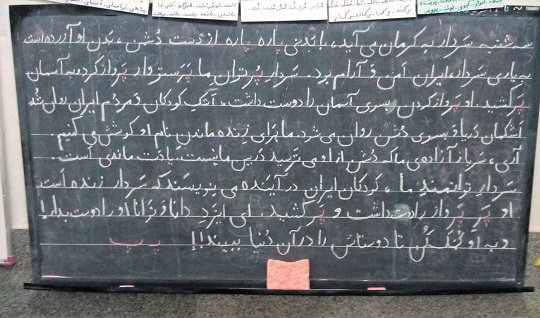 سه شنبه سردار به کرمان می آید، با بدنی پاره پاره از دست دشمن، بدن او آزرده است
به یاری سردار، ایران امن و آرام بود. سردار پرتوان ما پرستو وار پرواز کرد و به آسمان
پر کشید. او پرواز کردن بسوی آسمان را دوست داشت، اشک کودکان و مردم ایران روان شد
اشکمان دریا و بسوی دشمن روان می شود. ما برای زنده ماندن نام او کوشش می کنیم.
آری، سرباز آزاده ی ما که دشمن از او می ترسید در بین ما نیست، یادت ماندنی است.
سردار توانمند ما، کودکان ایران در آینده می نویسند که سردار زنده است
او پر پرواز را دوست داشت و پر کشید. ای ایزد دانا و توانا او را دوست بدار!
و به او کمک کن تا دوستانش را در آن دنیا ببیند!! پ پ